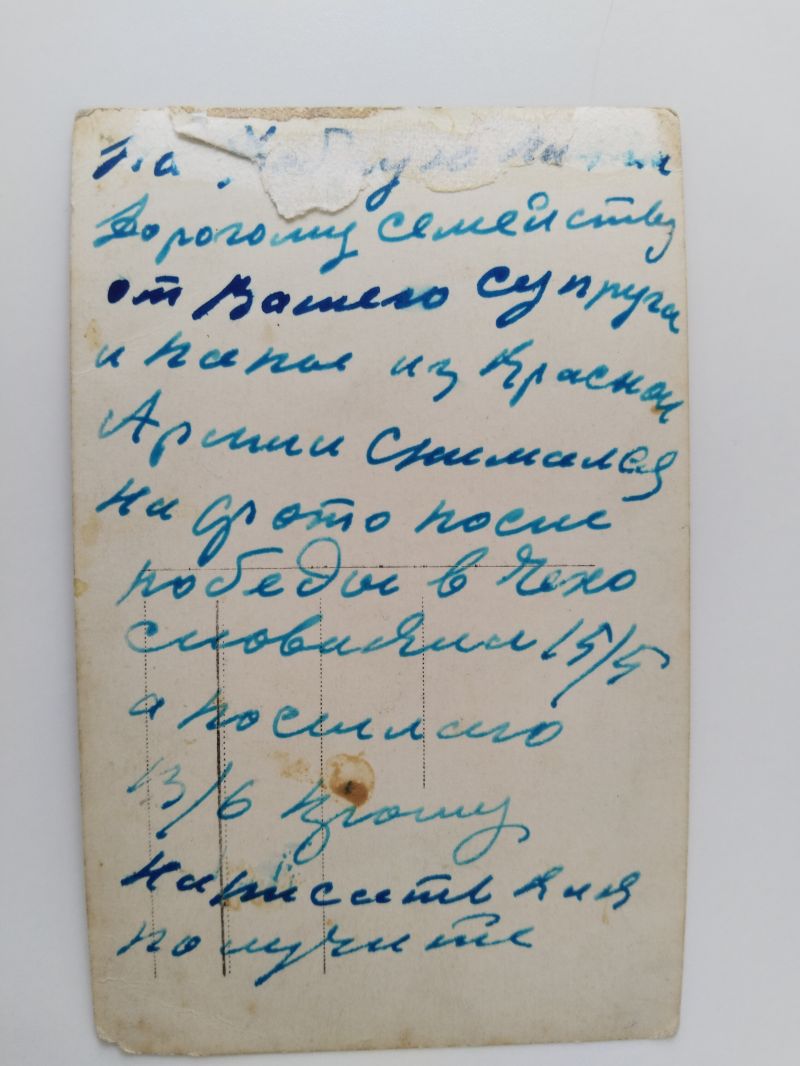 На
Дорогому семейству
от Вашего супруга
и папы из Красной
Армии снимался
на фото после
победы в Чехо
словакии 15/5
а посылаю
13/6 прошу
написать как
получите